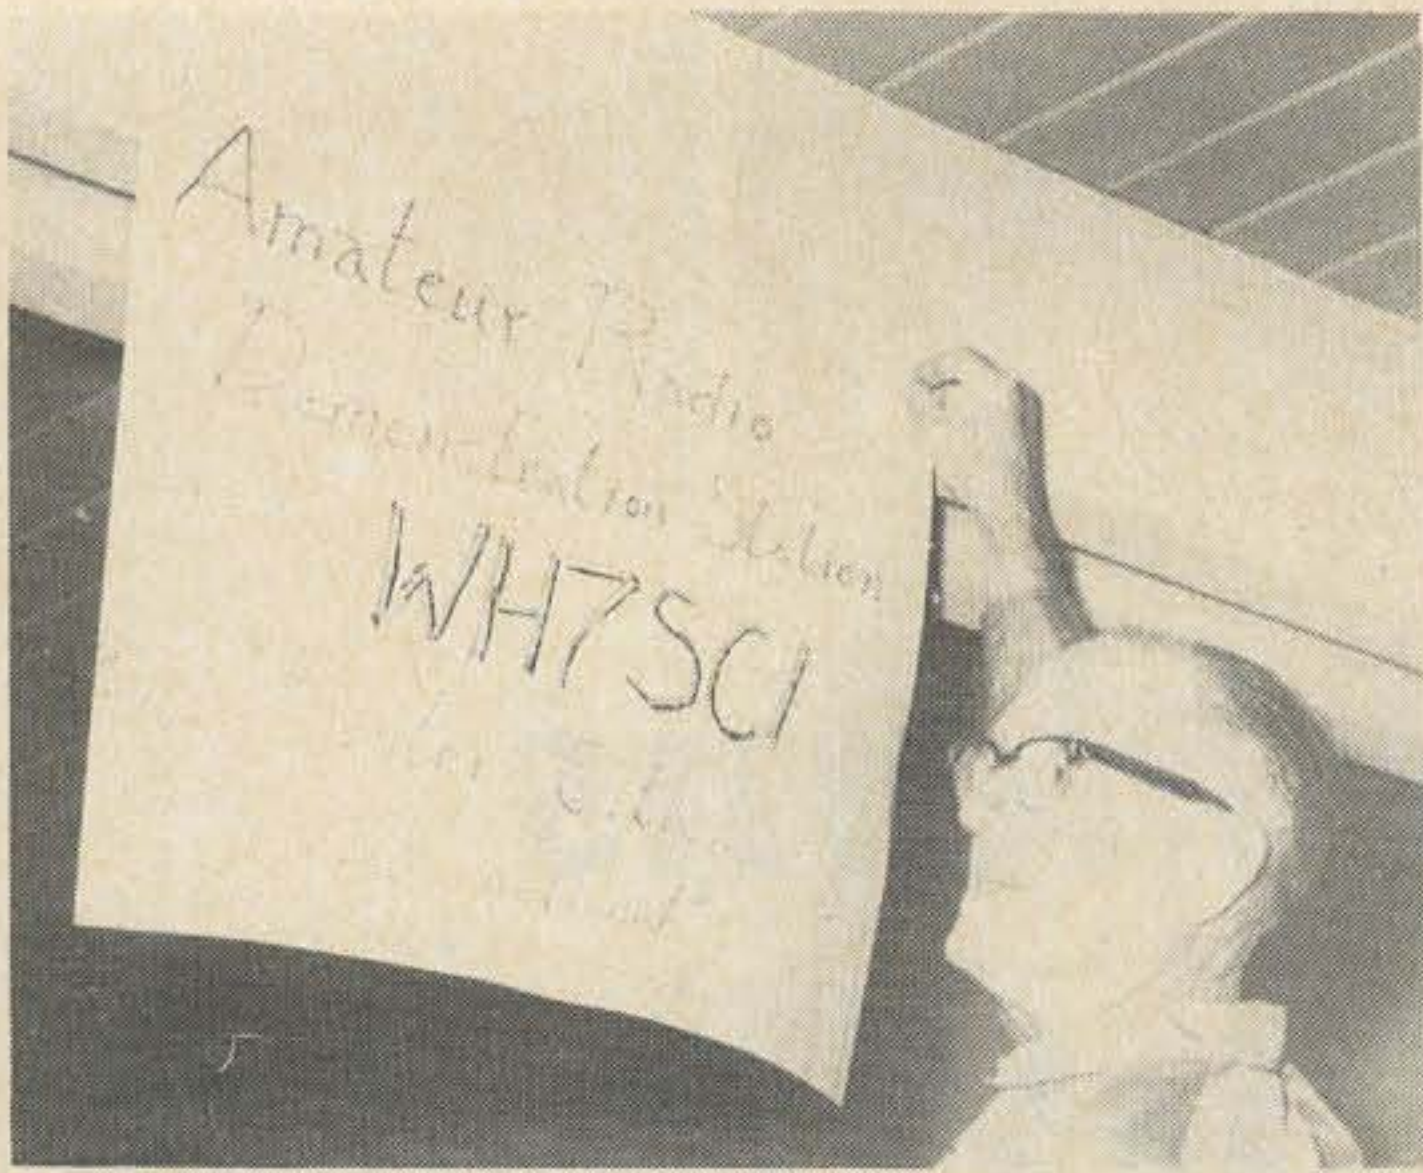 Amateur Radio
Demonstration Station
WH7SCI
for